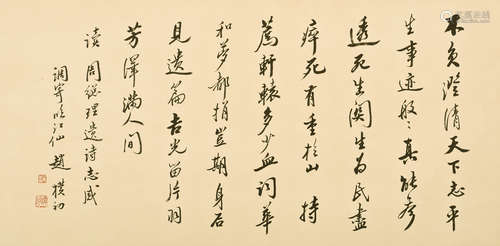 不负澄清天下志平
生事迹般々真能参
透死生关生为民尽
瘁死有重于山 持
荐轩辕多少血词华
和梦都捐岂期身后
见遗篇吉光留片羽
芳泽满人间
读 周总理遗诗志感
调寄临江仙 赵朴初